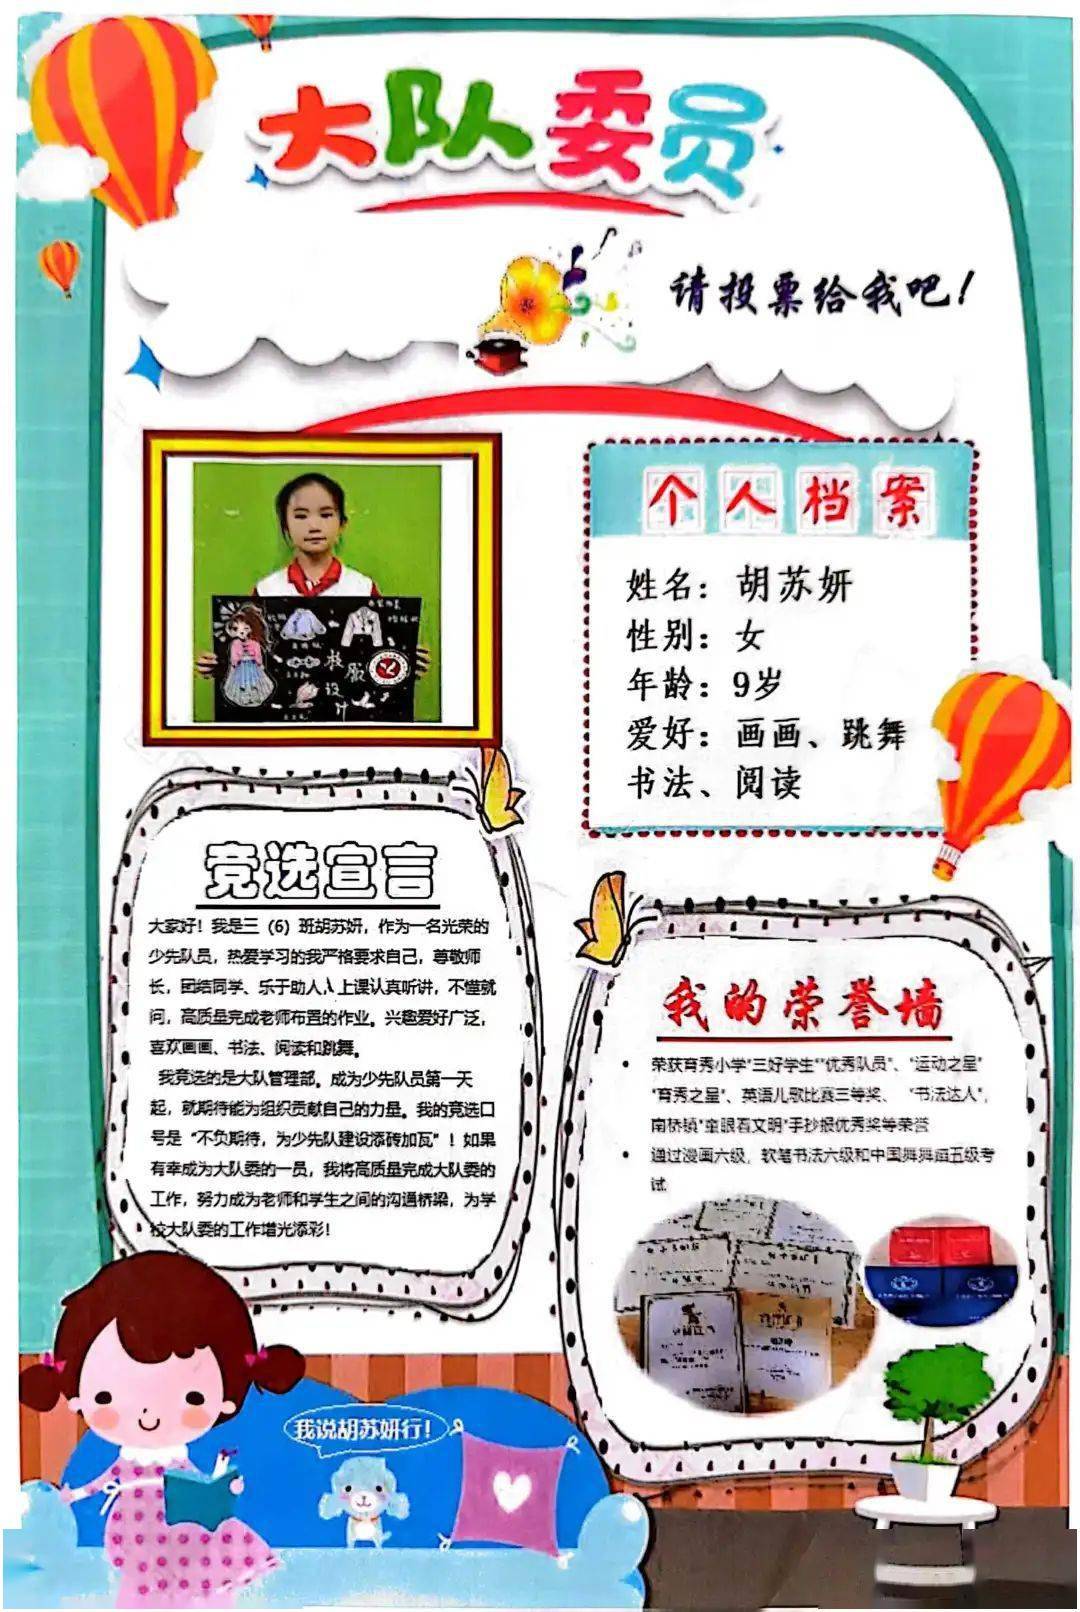 大队委员
请投票给我吧！
个人档案
姓名：胡苏妍
性别：女
年龄：9岁
爱好：画画、跳舞
书法、阅读
校服设计
竞选宣言
大家好！我是三（6）班胡苏妍，作为一名光荣的
少先队员，热爱学习的我严格要求自己，尊敬师
长，团结同学、乐于助人、上课认真听讲，不懂就
问，高质量完成老师布置的作业。兴趣爱好广泛，
喜欢画画、书法、阅读和跳舞。
我竞选的是大队管理部。成为少先队员第一天
起，就期待能为组织贡献自己的力量。我的竞选口
号是“不负期待，为少先队建设添砖加瓦”！如果
有幸成为大队委的一员，我将高质量完成大队委的
工作，努力成为老师和学生之间的沟通桥梁，为学
校大队委的工作增光添彩！
我的荣誉墙
• 荣获育秀小学“三好学生”“优秀队员”、“运动之星”
“育秀之星”、英语儿歌比赛三等奖、“书法达人”，
南桥镇“童眼看文明”手抄报优秀奖等荣誉
• 通过漫画六级，软笔书法六级和中国舞舞蹈五级考
试
我说胡苏妍行！